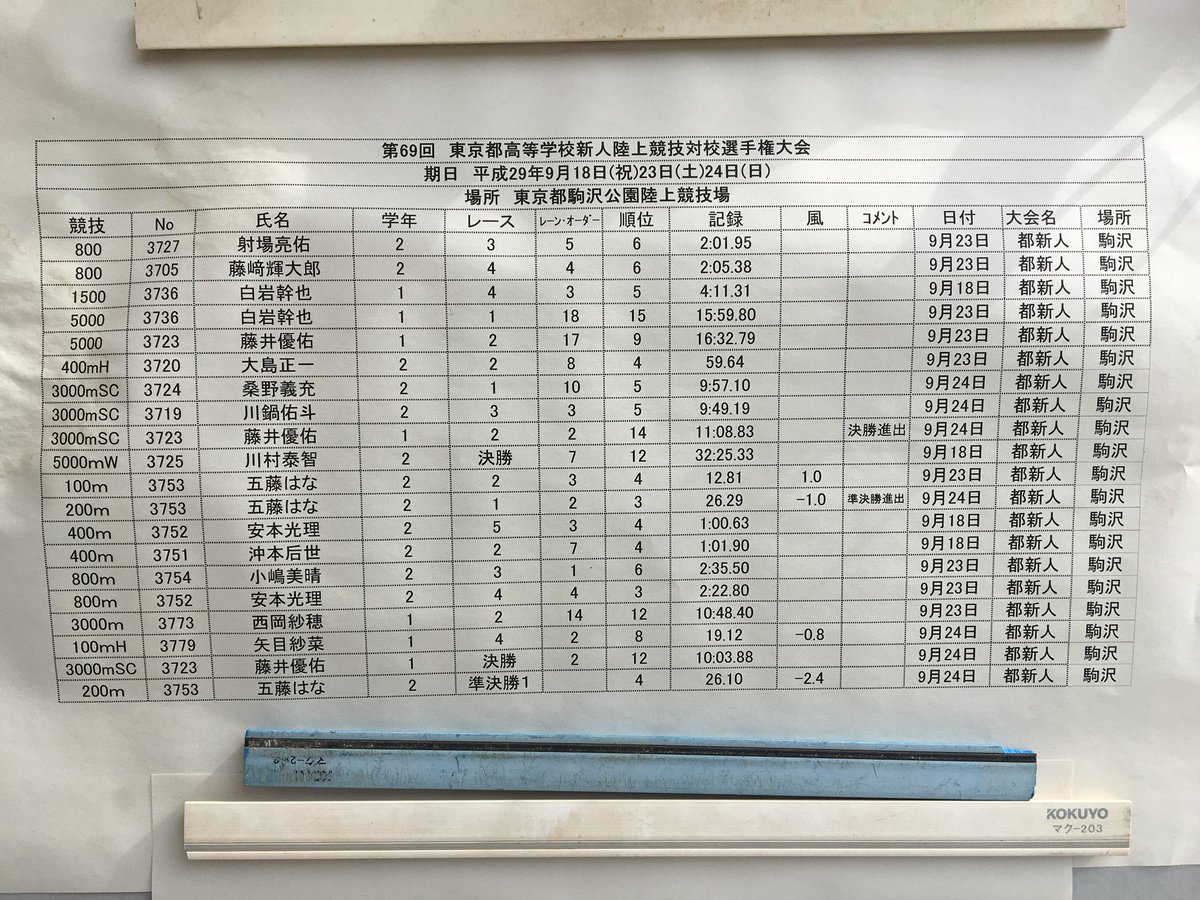 第69回 東京都高等学校新人陸上競技対校選手権大会
期日 平成29年9月18日(祝)23日(土)24日(日)
場所 東京都駒沢公園陸上競技場
競技 No 氏名 学年 レース レーン・オーダー 順位 記録 風 コメント 日付 大会名 場所
800 3727 射場亮佑 2 3 5 6 2:01.95 9月23日 都新人 駒沢
800 3705 藤﨑輝大郎 2 4 4 6 2:05.38 9月23日 都新人 駒沢
1500 3736 白岩幹也 1 4 3 5 4:11.31 9月18日 都新人 駒沢
5000 3736 白岩幹也 1 1 18 15 15:59.80 9月23日 都新人 駒沢
5000 3723 藤井優佑 1 2 17 9 16:32.79 9月23日 都新人 駒沢
400mH 3720 大島正一 2 2 8 4 59.64 9月23日 都新人 駒沢
3000mSC 3724 桑野義充 2 1 10 5 9:57.10 9月24日 都新人 駒沢
3000mSC 3719 川鍋佑斗 2 3 3 5 9:49.19 9月24日 都新人 駒沢
3000mSC 3723 藤井優佑 1 2 2 14 11:08.83 決勝進出 9月24日 都新人 駒沢
5000mW 3725 川村泰智 2 決勝 7 12 32:25.33 9月18日 都新人 駒沢
100m 3753 五藤はな 2 2 3 4 12.81 1.0 9月23日 都新人 駒沢
200m 3753 五藤はな 2 1 2 3 26.29 -1.0 準決勝進出 9月24日 都新人 駒沢
400m 3752 安本光理 2 5 3 4 1:00.63 9月18日 都新人 駒沢
400m 3751 沖本后世 2 2 7 4 1:01.90 9月18日 都新人 駒沢
800m 3754 小嶋美晴 2 3 1 6 2:35.50 9月23日 都新人 駒沢
800m 3752 安本光理 2 4 4 3 2:22.80 9月23日 都新人 駒沢
3000m 3773 西岡紗穂 1 2 14 12 10:48.40 9月23日 都新人 駒沢
100mH 3779 矢目紗菜 1 4 2 8 19.12 -0.8 9月24日 都新人 駒沢
3000mSC 3723 藤井優佑 1 決勝 2 12 10:03.88 9月24日 都新人 駒沢
200m 3753 五藤はな 2 準決勝1 4 26.10 -2.4 9月24日 都新人 駒沢
KOKUYO
マク-203